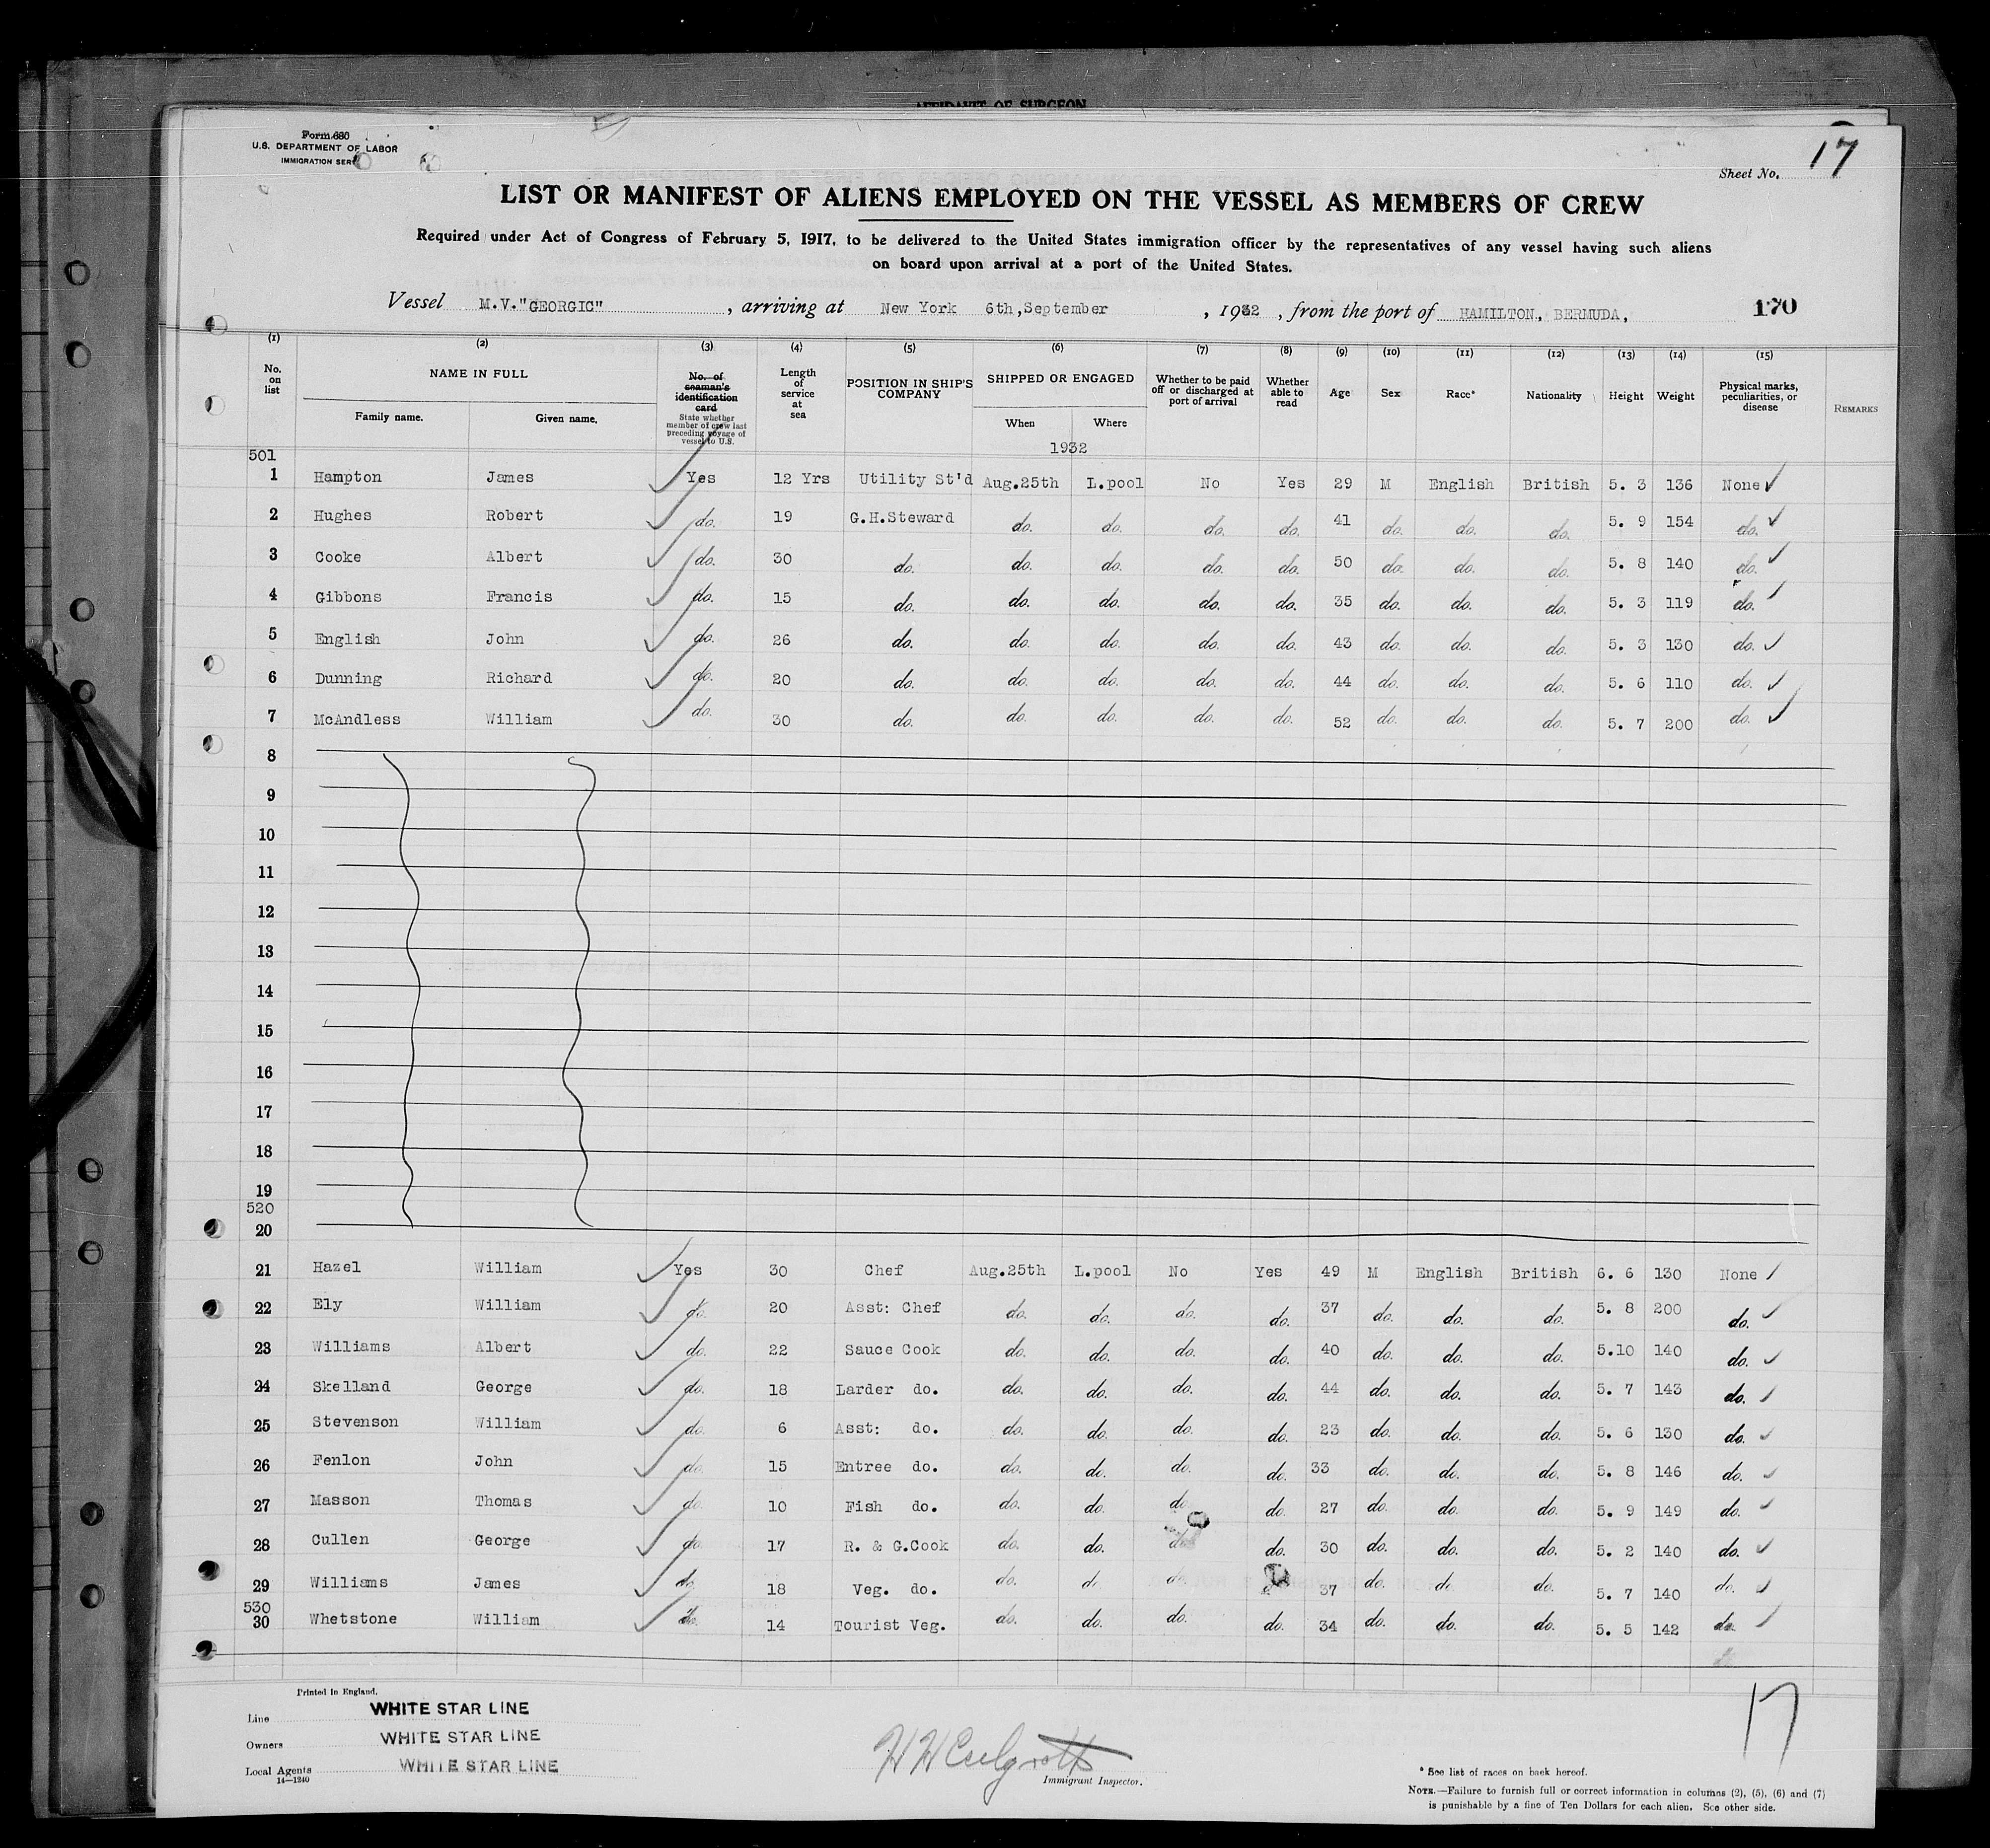 AFFIDAVIT OF SURGEON
Form 680
U.S. DEPARTMENT OF LABOR
IMMIGRATION SER
Sheet No. 17
LIST OR MANIFEST OF ALIENS EMPLOYED ON THE VESSEL AS MEMBERS OF CREW
Required under Act of Congress of February 5, 1917, to be delivered to the United States immigration officer by the representatives of any vessel having such aliens
on board upon arrival at a port of the United States.
Vessel M.V."GEORGIC", arriving at New York 6th,September, 1932, from the port of HAMILTON, BERMUDA, 170
(1) (2) (3) (4) (5) (6) (7) (8) (9) (10) (11) (12) (13) (14) (15)
No. on list
NAME IN FULL
Family name. Given name.
No. of seaman's identification card
State whether member of crew last preceding voyage of vessel to U.S.
Length of service at sea
POSITION IN SHIP'S COMPANY
SHIPPED OR ENGAGED
When Where
1932
Whether to be paid off or discharged at port of arrival
Whether able to read
Age
Sex
Race*
Nationality
Height
Weight
Physical marks, peculiarities, or disease
REMARKS
501
1 Hampton James Yes 12 Yrs Utility St'd Aug.25th L.pool No Yes 29 M English British 5. 3 136 None
2 Hughes Robert do. 19 G.H.Steward do. do. do. do. 41 do. do. do. 5. 9 154 do.
3 Cooke Albert do. 30 do. do. do. do. do. 50 do. do. do. 5. 8 140 do.
4 Gibbons Francis do. 15 do. do. do. do. do. 35 do. do. do. 5. 3 119 do.
5 English John do. 26 do. do. do. do. do. 43 do. do. do. 5. 3 130 do.
6 Dunning Richard do. 20 do. do. do. do. do. 44 do. do. do. 5. 6 110 do.
7 McAndless William do. 30 do. do. do. do. do. 52 do. do. do. 5. 7 200 do.
8
9
10
11
12
13
14
15
16
17
18
19
520
20
21 Hazel William Yes 30 Chef Aug.25th L.pool No Yes 49 M English British 6. 6 130 None
22 Ely William do. 20 Asst: Chef do. do. do. do. 37 do. do. do. 5. 8 200 do.
23 Williams Albert do. 22 Sauce Cook do. do. do. do. 40 do. do. do. 5.10 140 do.
24 Skelland George do. 18 Larder do. do. do. do. do. 44 do. do. do. 5. 7 143 do.
25 Stevenson William do. 6 Asst: do. do. do. do. do. 23 do. do. do. 5. 6 130 do.
26 Fenlon John do. 15 Entree do. do. do. do. do. 33 do. do. do. 5. 8 146 do.
27 Masson Thomas do. 10 Fish do. do. do. do. do. 27 do. do. do. 5. 9 149 do.
28 Cullen George do. 17 R. & G.Cook do. do. do. do. 30 do. do. do. 5. 2 140 do.
29 Williams James do. 18 Veg. do. do. do. do. 37 do. do. do. 5. 7 140 do.
530
30 Whetstone William do. 14 Tourist Veg. do. do. do. do. 34 do. do. do. 5. 5 142 do.
Printed in England.
Line WHITE STAR LINE
Owners WHITE STAR LINE
Local Agents WHITE STAR LINE
14—1240
Immigrant Inspector.
17
* See list of races on back hereof.
NOTE.—Failure to furnish full or correct information in columns (2), (5), (6) and (7)
is punishable by a fine of Ten Dollars for each alien. See other side.